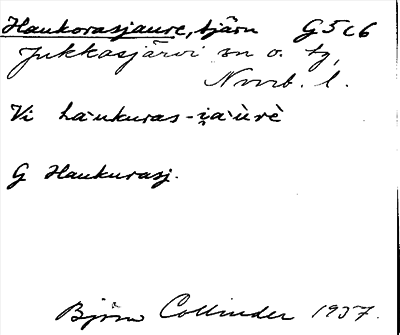 Haukorasjaure, tjärn G5c6
Jukkasjärvi sn o. tg,
Norrb. l.
Vi ha`ukuras-i̯a`ùrè
G Haukurasj.
Björn Collinder 1937.